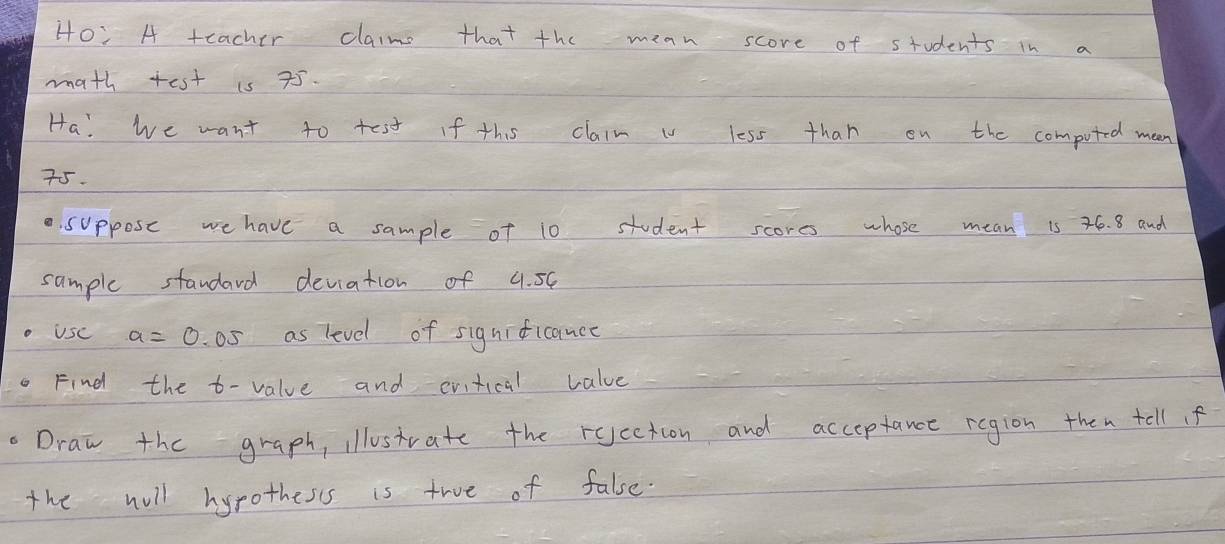 Ho: A teacher claims that the mean score of students in a
math test is 75.
Ha: We want to test if this claim is less than on the computed mean
75.
• suppose we have a sample of 10 student scores whose mean is 76.8 and
sample standard deviation of 4.56
• Use a = 0.05 as level of significance
• Find the t-value and critical value
• Draw the graph, illustrate the rejection and acceptance region then tell if
the null hypothesis is true of false.